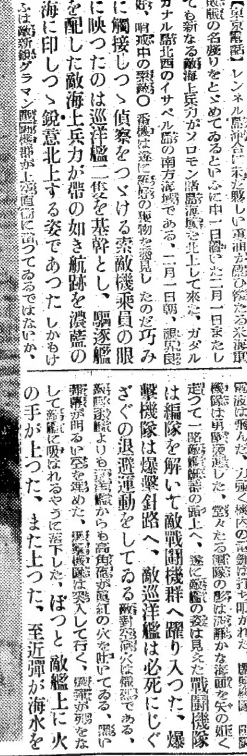 【東京電話】レンネル島沖合に未だ夥しい重油が漂ひ米海軍
の名殘りをとどめてゐるといふに中一日置いた二月一日またし
ても新なる敵海上兵力がソロモン諸島海域を北上して來た、ガダル
カナル島北西のイサベル島の南方海域である、二月一日朝、視界良
好、哨戒中の索敵〇番機は遂に獲物を發見したのだ巧み
に觸接しつゝ偵察をつゞける索敵機乘員の眼
に映つたのは巡洋艦二隻を基幹とし、驅逐艦
を配した敵海上兵力が帶の如き航跡を濃藍の
海に印しつゝ鋭意北上する姿であつた しかも
ふは敵新鋭グラマン戰鬪機群が上空直衞に當つてゐるではないか、
電波は飛んだ、
機隊は勇躍發進した、堂々たる編隊の影は波靜かな海面を矢の如
走つて一路敵艦隊の頭上へ、遂に敵艦の姿は見えた 戰鬪機隊
は編隊を解いて敵戰鬪機群へ躍り入つた、爆
撃機隊は爆撃針路へ、敵巡洋艦は必死にじぐ
ざぐの退避運動をしてゐる敵對空砲火は熾烈である、
敵驅逐艦よりも巡洋艦からも高角砲が眞紅の火を吐いてゐる 黒い
彈幕が明るい空を染めた、爆撃機隊は突入して行く、爆彈が列をな
して敵艦に吸はれるやうに落下した、ぼつと敵艦上に火
の手が上つた、また上つた、至近彈が海水を